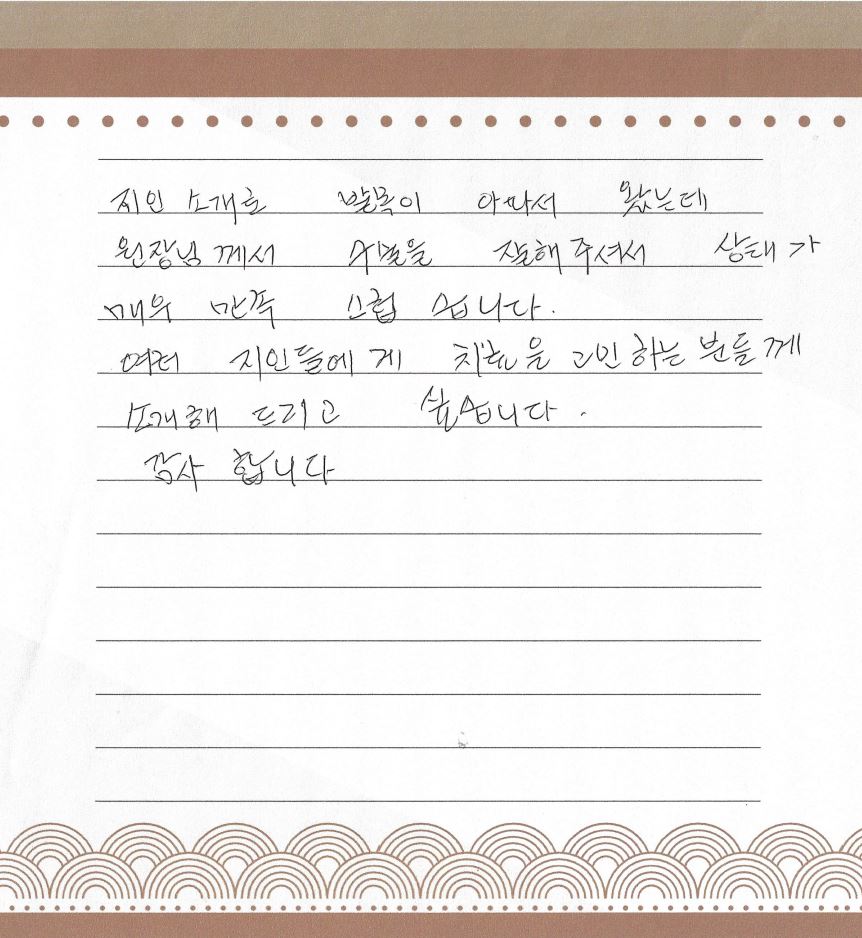 지인 소개로 발목이 아파서 왔는데
원장님 께서 수술을 잘해 주셔서 상태 가
매우 만족 스럽 습니다.
여러 지인들에 게 치료을 고민 하는 분들 께
소개해 드리고 싶습니다.
감사 합니다